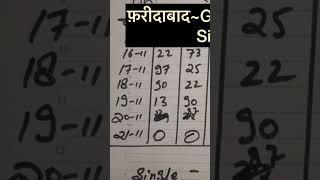 फ़रीदाबाद~G
Si
16-11 22 73
17-11 97 25
18-11 90 22
19-11 13 90
20-11 87
21-11 0 0
17-11
18-11
19-11
20-11
21-11
25
22
90
87
0
Single -